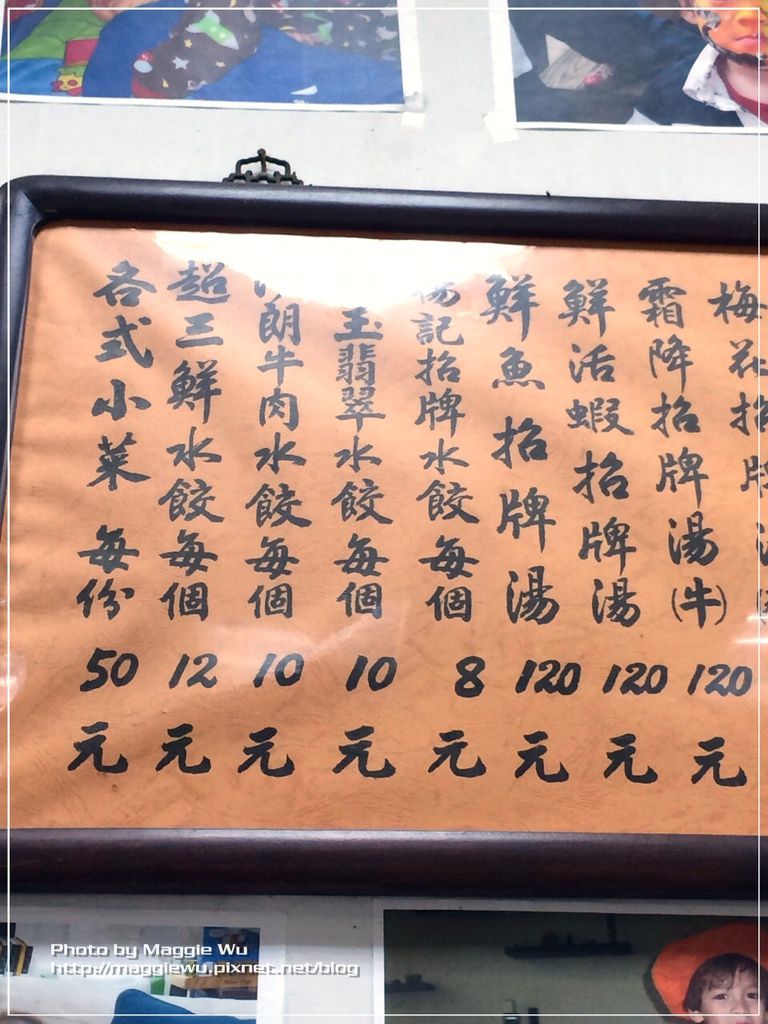 梅花招牌
霜降招牌湯(牛) 120元
鮮活蝦招牌湯 120元
鮮魚招牌湯 120元
記招牌水餃每個 8元
玉翡翠水餃每個 10元
朗牛肉水餃每個 10元
超三鮮水餃每個 12元
各式小菜 每份 50元
Photo by Maggie Wu
http://maggiewu.pixnet.net/blog